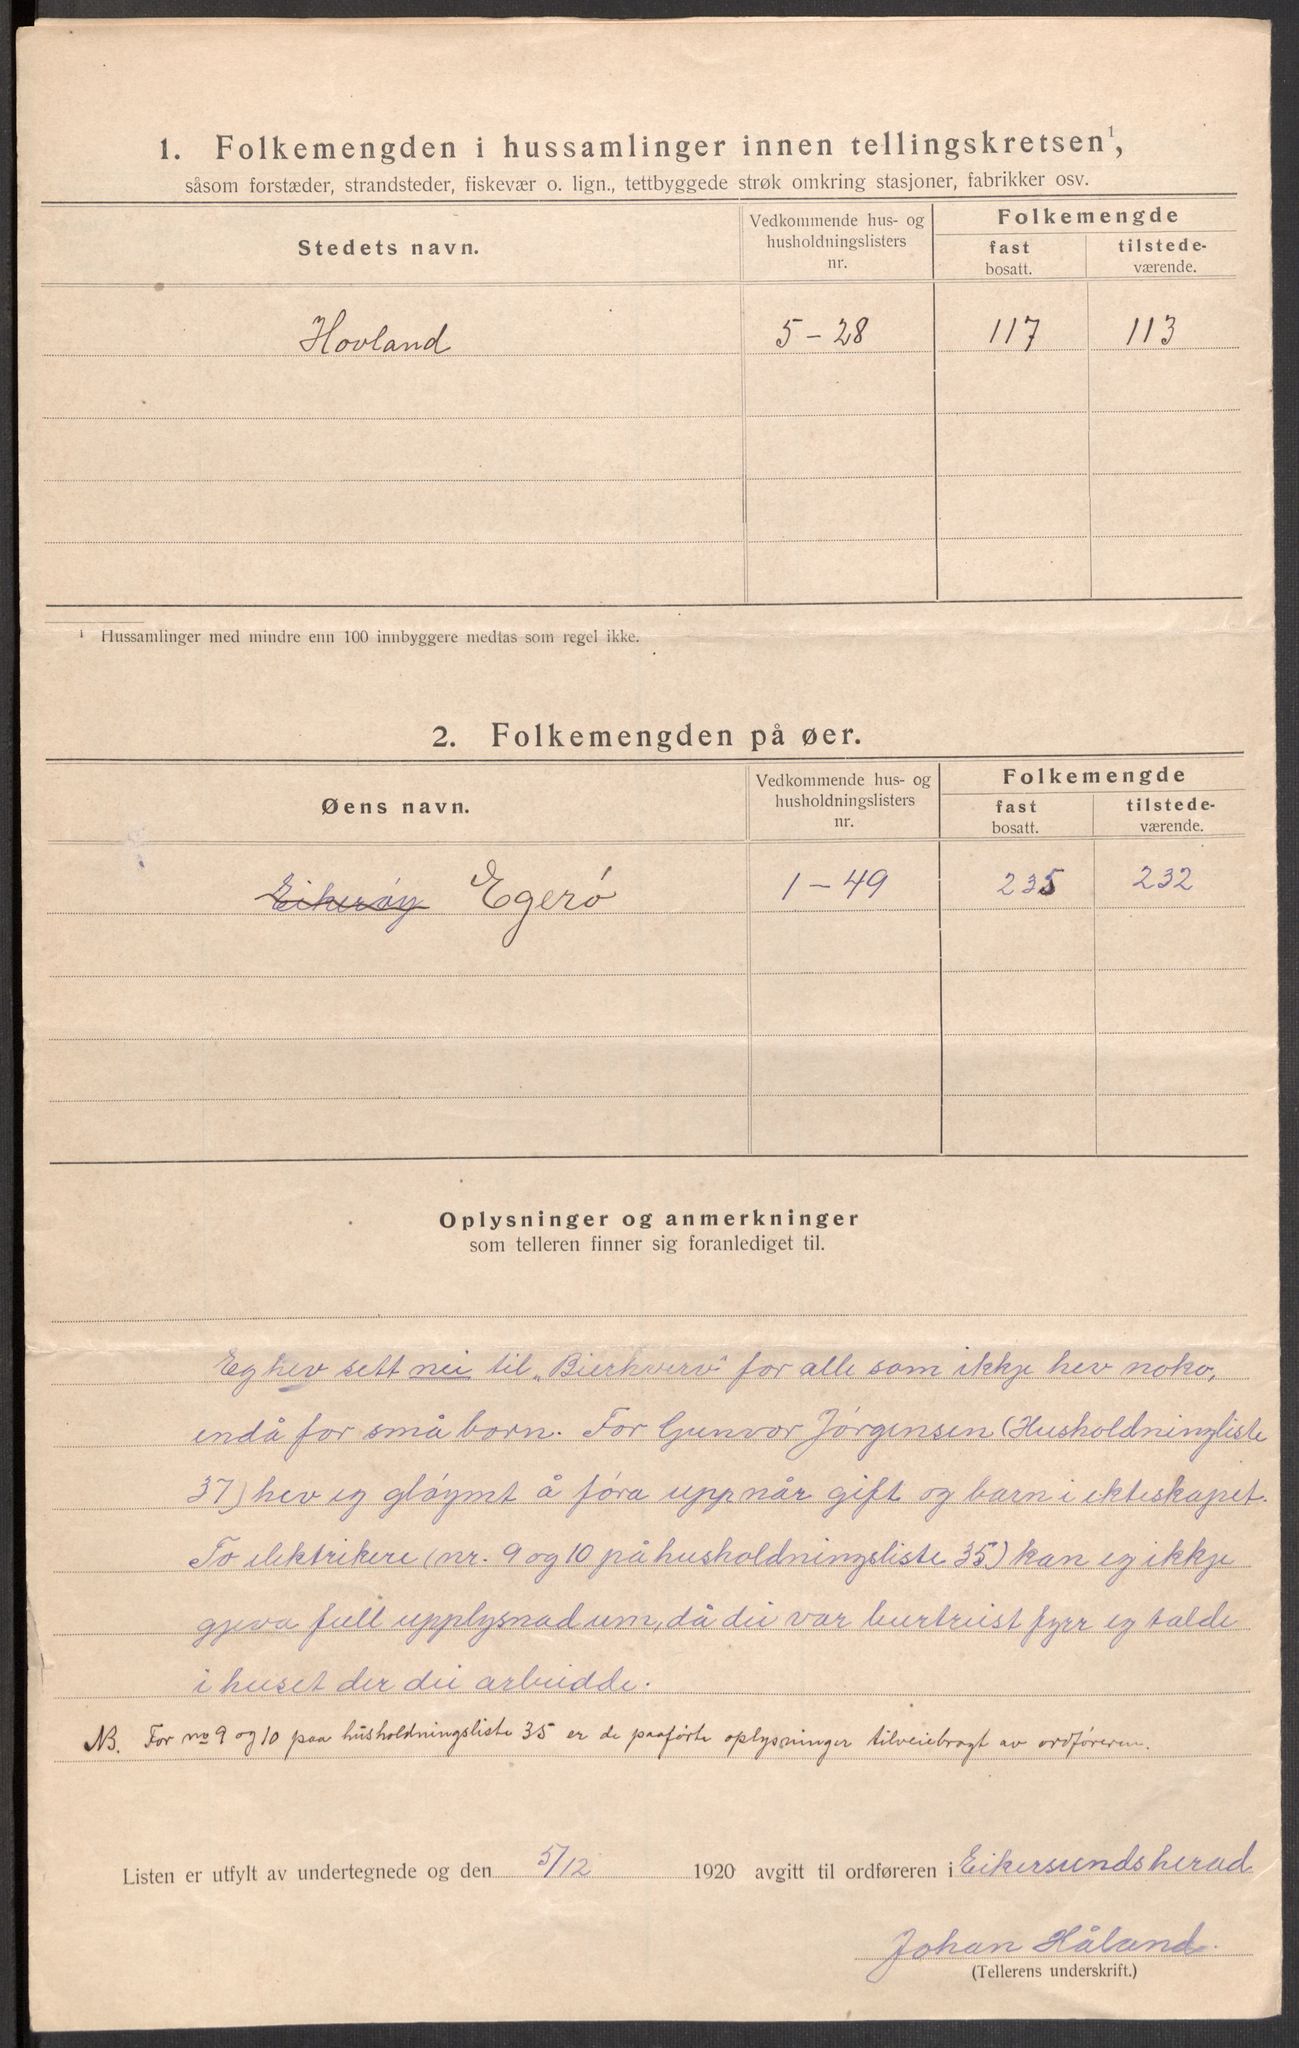 1. Folkemengden i hussamlinger innen tellingskretsen¹,
såsom forstæder, strandsteder, fiskevær o. lign., tettbyggede strøk omkring stasjoner, fabrikker osv.
Stedets navn.
Vedkommende hus- og
husholdningslisters
nr.
Folkemengde
fast
bosatt.
tilstede-
værende.
Hovland 5 – 28 117 113
¹ Hussamlinger med mindre enn 100 innbyggere medtas som regel ikke.
2. Folkemengden på øer.
Øens navn.
Vedkommende hus- og
husholdningslisters
nr.
Folkemengde
fast
bosatt.
tilstede-
værende.
Eikerøy Egerø 1 – 49 235 232
Oplysninger og anmerkninger
som telleren finner sig foranlediget til.
Eg hev sett nei til „Bierhverv“ for alle som ikkje hev noko,
endå for små born. For Gunvor Jørgensen (Husholdningliste
37) hev eg gløymt å føra upp når gift og barn i ekteskapet.
To elektrikere (nr. 9 og 10 på husholdningsliste 35) kan eg ikkje
gjeva full upplysnad um, då dei var burtreist fyrr eg talde
i huset der dei arbeidde.
NB. For no 9 og 10 paa husholdningsliste 35 er de paaførte oplysninger tilveiebragt av ordføreren.
Listen er utfylt av undertegnede og den 5/12 1920 avgitt til ordføreren i Eikersundsherad
Johan Håland.
(Tellerens underskrift.)